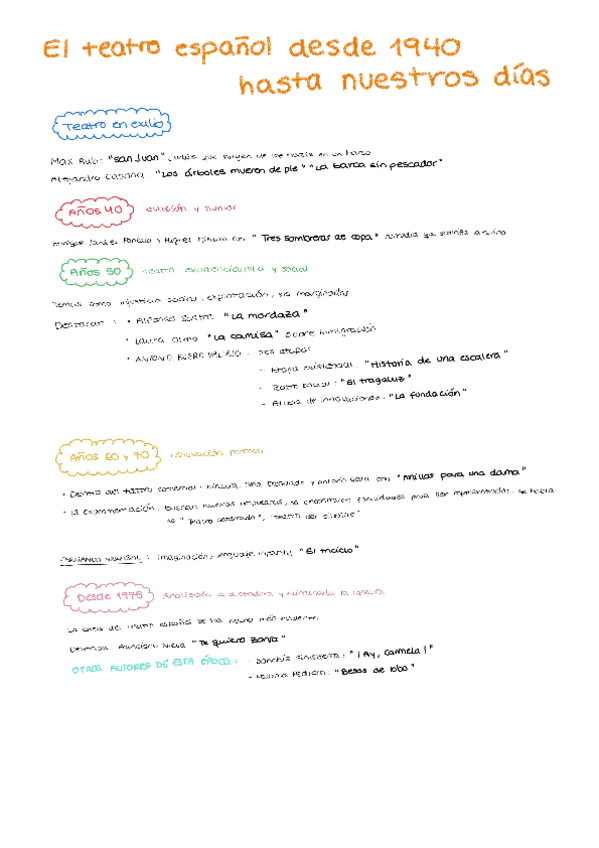 El teatro español desde 1940
hasta nuestros días
Teatro en exilio
Max Aub: "San Juan", en un barco
Alejandro Casona "Los árboles mueren de pie" "La barca sin pescador"
AÑOS 40 evasión y humor
Enrique Jardiel Poncela y Miguel Mihura con "Tres sombreros de copa" comedia que
AÑOS 50 teatro existencialista y social
Temas como injusticia social, explotación, los marginados
Destacan : • Alfonso Sastre "La mordaza"
• Lauro Olmo "La camisa" sobre inmigración
• ANTONIO BUERO VALLEJO - tres etapas
- Etapa existencial: "Historia de una escalera"
- Teatro social: "El tragaluz"
- Etapa de innovaciones: "La fundación"
AÑOS 60 y 70 renovación formal
• Dentro del teatro comercial y Antonio Gala con "Anillos para una dama"
• La experimentación: buscan nuevas propuestas, para ser representadas. se habla
"Teatro soterrado", "teatro del silencio"
: imaginación, lenguaje infantil, "El triciclo"
Desde 1975 Finalizada la dictadura y eliminada la censura
La crisis del teatro español se ha hecho más evidente.
Destacan: Francisco Nieva "Te quiero zorra"
OTROS AUTORES DE ESTA ÉPOCA : - Sanchís Sinisterra: "¡Ay, Carmela!"
- Paloma Pedrero: "Besos de lobo"